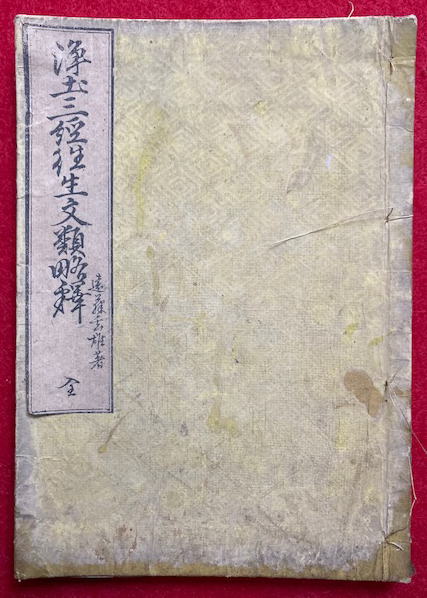 浄土三經往生文類略釋
遠藤玄雄著
全